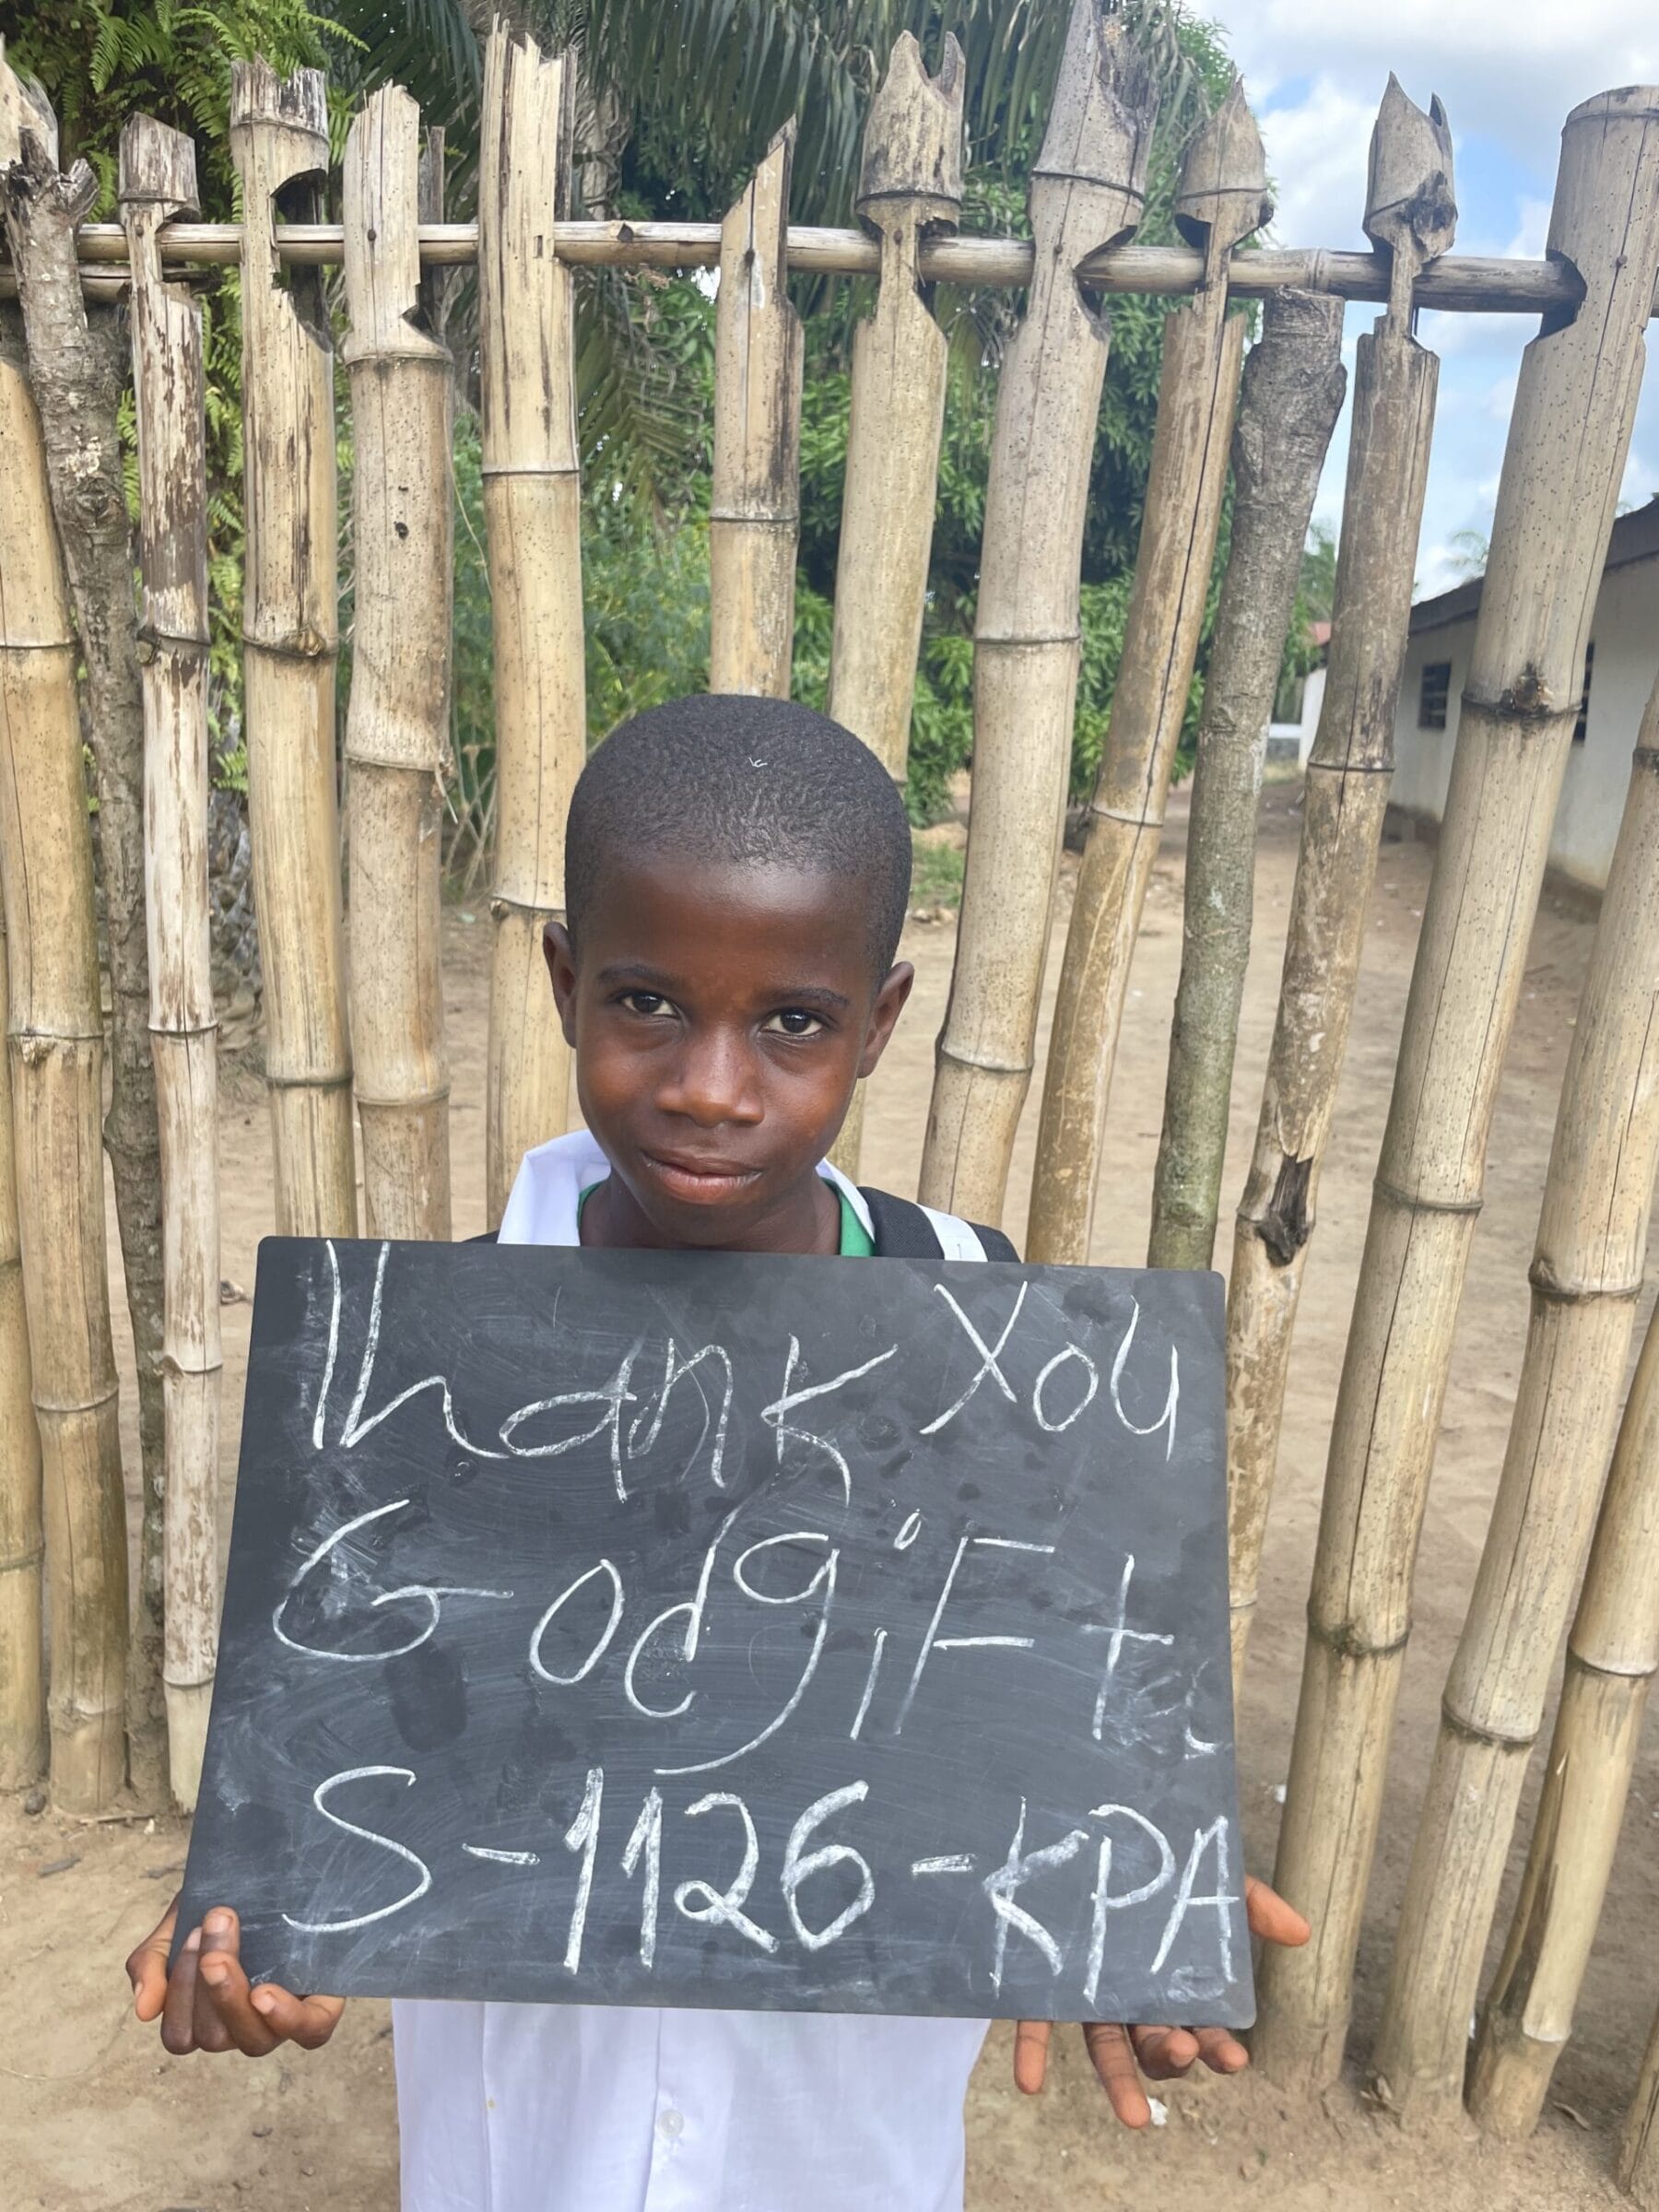 Thank You
Godgift
S-1126-KPA